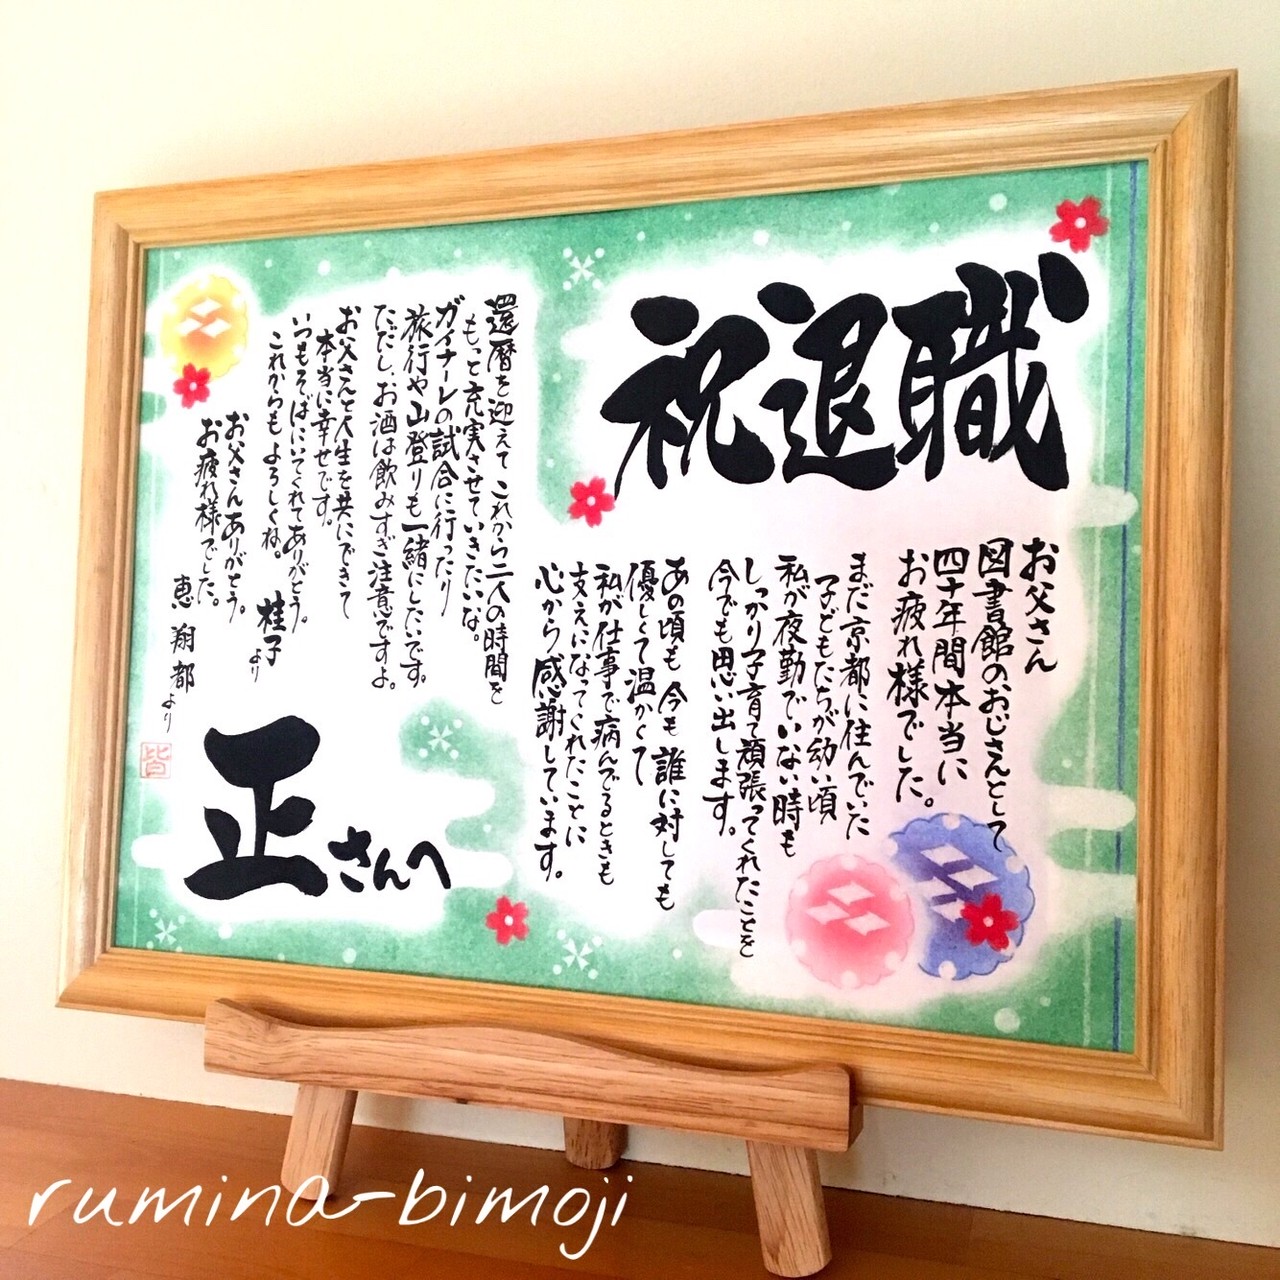 祝退職
お父さん
図書館のおじさんとして
四十年間本当に
お疲れ様でした。
まだ京都に住んでいた
子どもたちが幼い頃
私が夜勤でいない時も
しっかり子育て頑張ってくれたことを
今でも思い出します。
あの頃も今も誰に対しても
優しくて温かくて
私が仕事で病んでるときも
支えになってくれたことに
心から感謝しています。
還暦を迎えてこれから二人の時間を
もっと充実させていきたいな。
ガイナーレの試合に行ったり
旅行や山登りも一緒にしたいです。
ただし、お酒は飲みすぎ注意ですよ。
お父さんと人生を共にできて
本当に幸せです。
いつもそばにいてくれてありがとう。
これからもよろしくね。
桂子より
お父さんありがとう。
お疲れ様でした。
恵 翔 都より
皆
正さんへ
rumina-bimoji